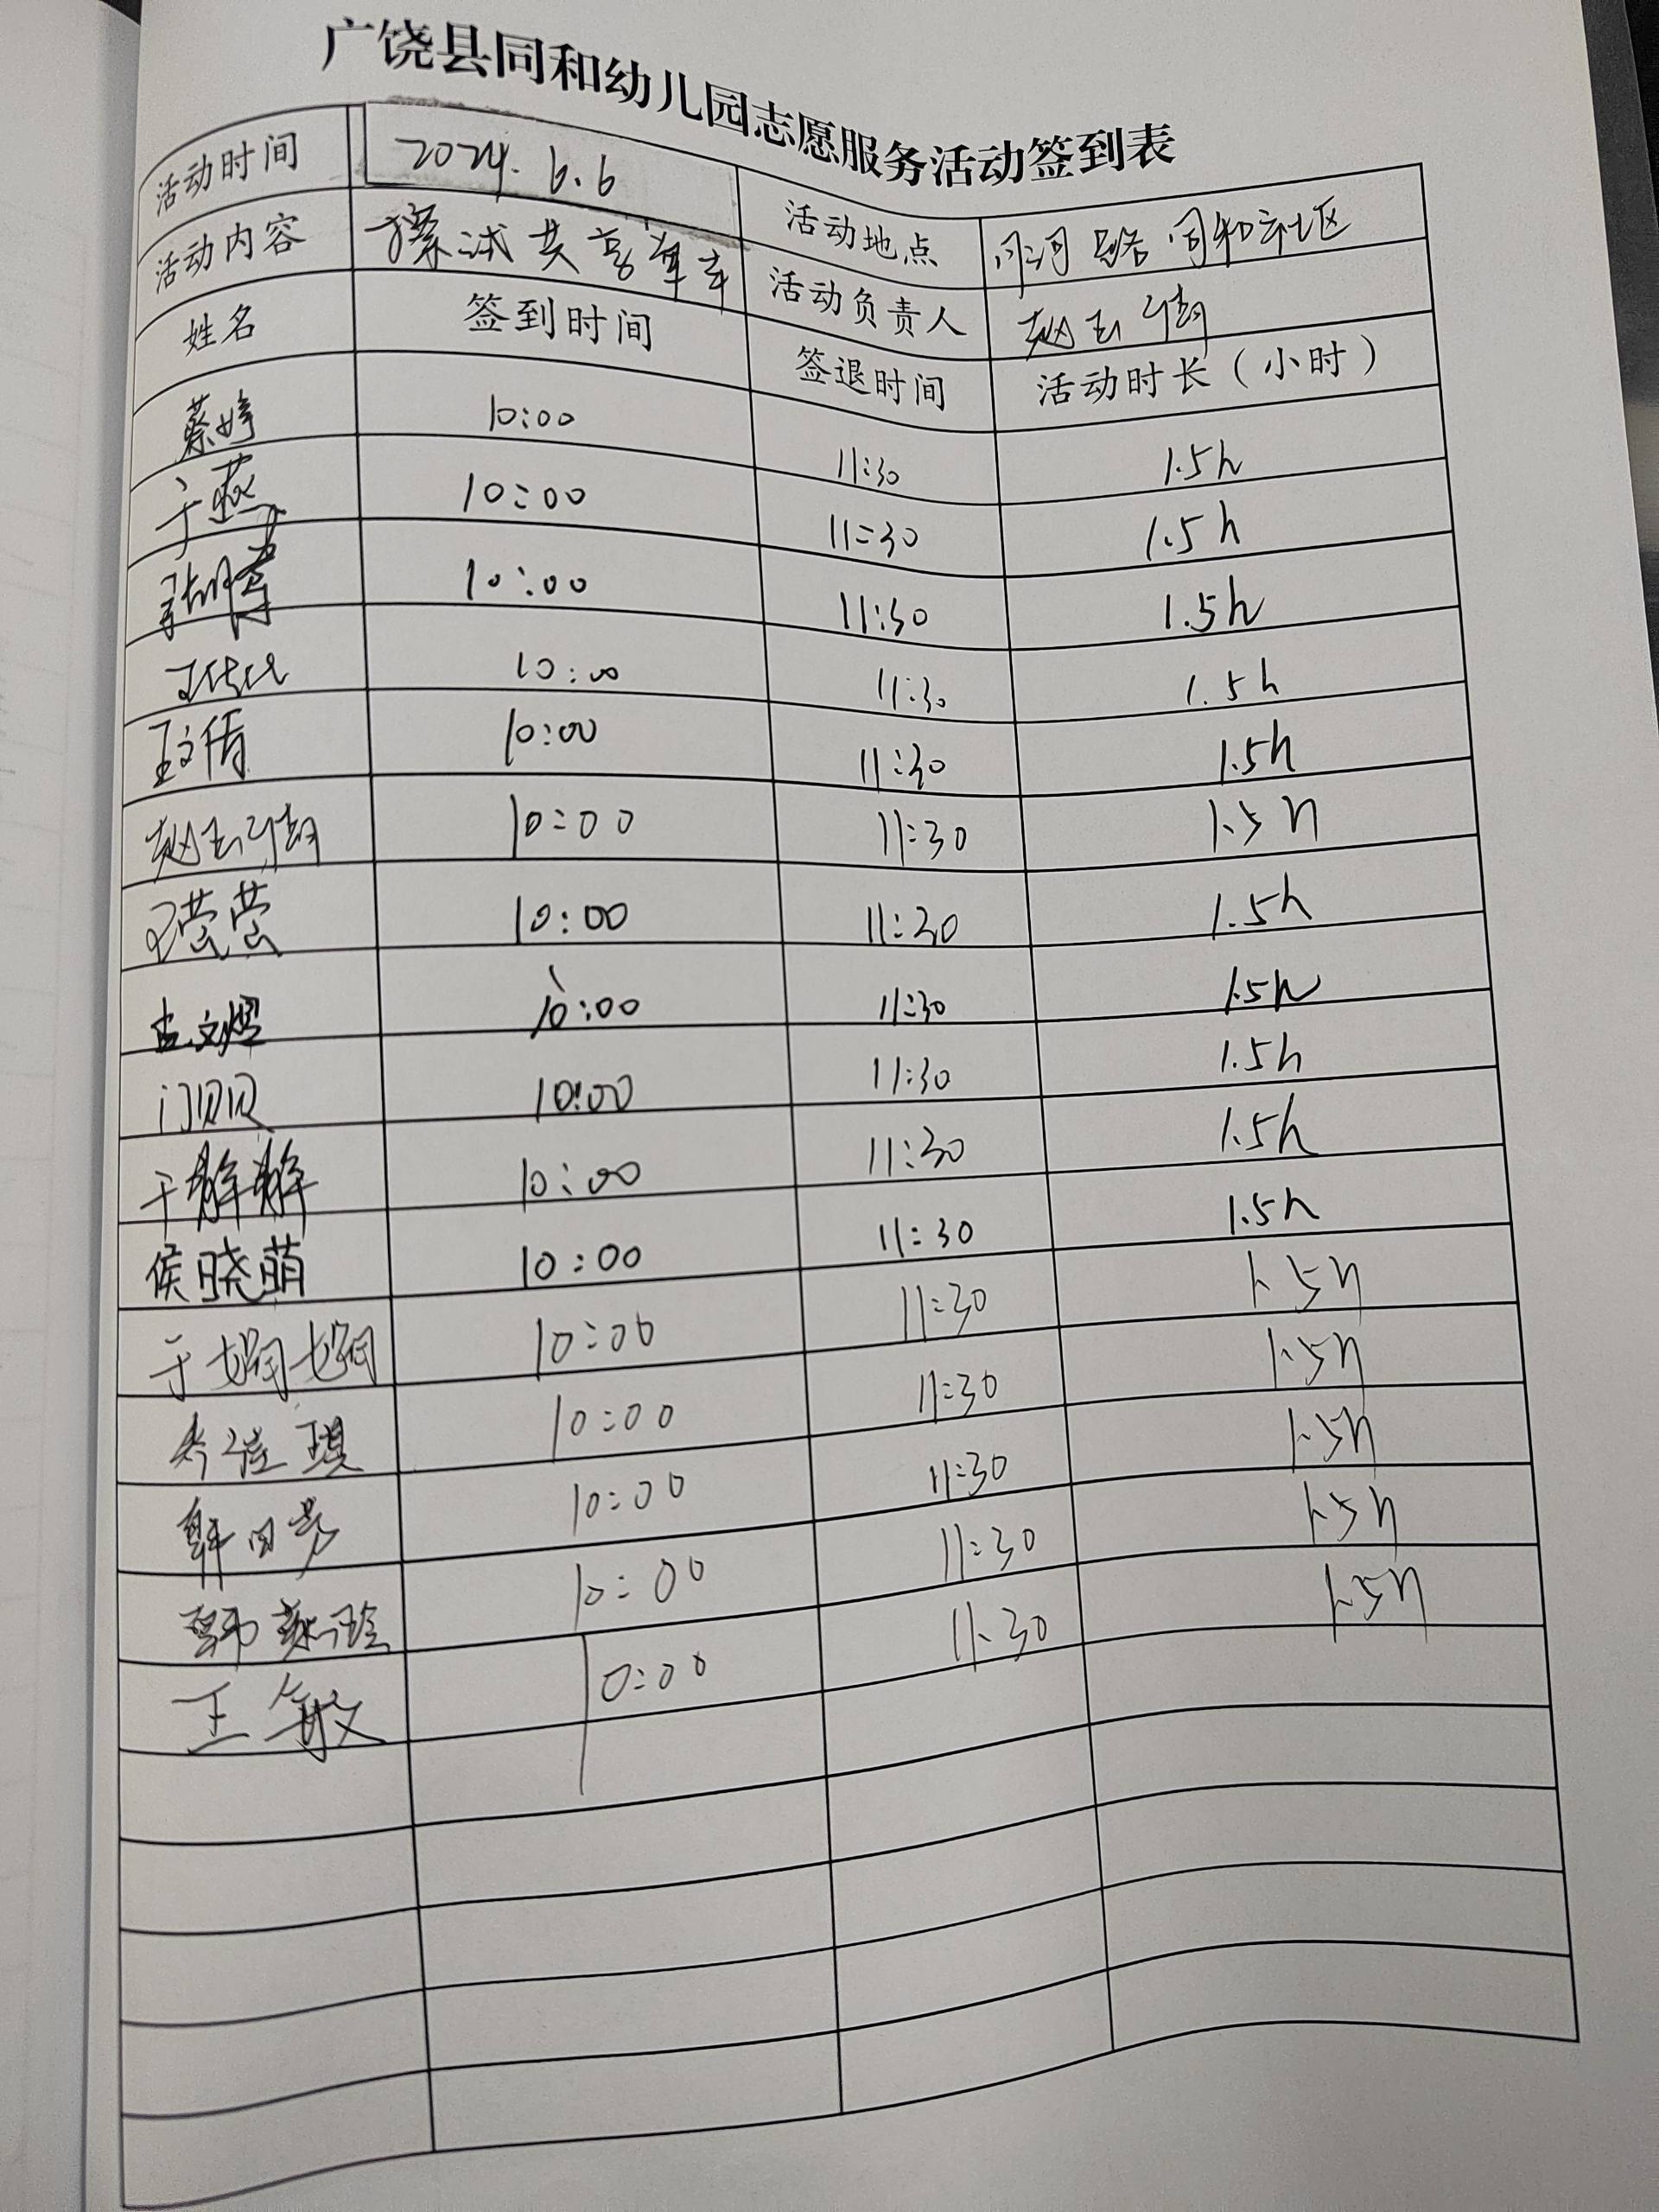 广饶县同和幼儿园志愿服务活动签到表
活动时间 2024.6.6 活动地点 同和社区
活动内容 擦试共享单车 活动负责人 赵玉倩
姓名 签到时间 签退时间 活动时长(小时)
蔡婷 10:00 11:30 1.5h
于燕 10:00 11:30 1.5h
10:00 11:30 1.5h
10:00 11:30 1.5h
王文倩 10:00 11:30 1.5h
赵玉倩 10:00 11:30 1.5h
王营营 10:00 11:30 1.5h
10:00 11:30 1.5h
门贝贝 10:00 11:30 1.5h
于解解 10:00 11:30 1.5h
侯晓萌 10:00 11:30 1.5h
于娟娟 10:00 11:30 1.5h
10:00 11:30 1.5h
10:00 11:30 1.5h
10:00 11:30 1.5h
王敏 10:00 11:30 1.5h